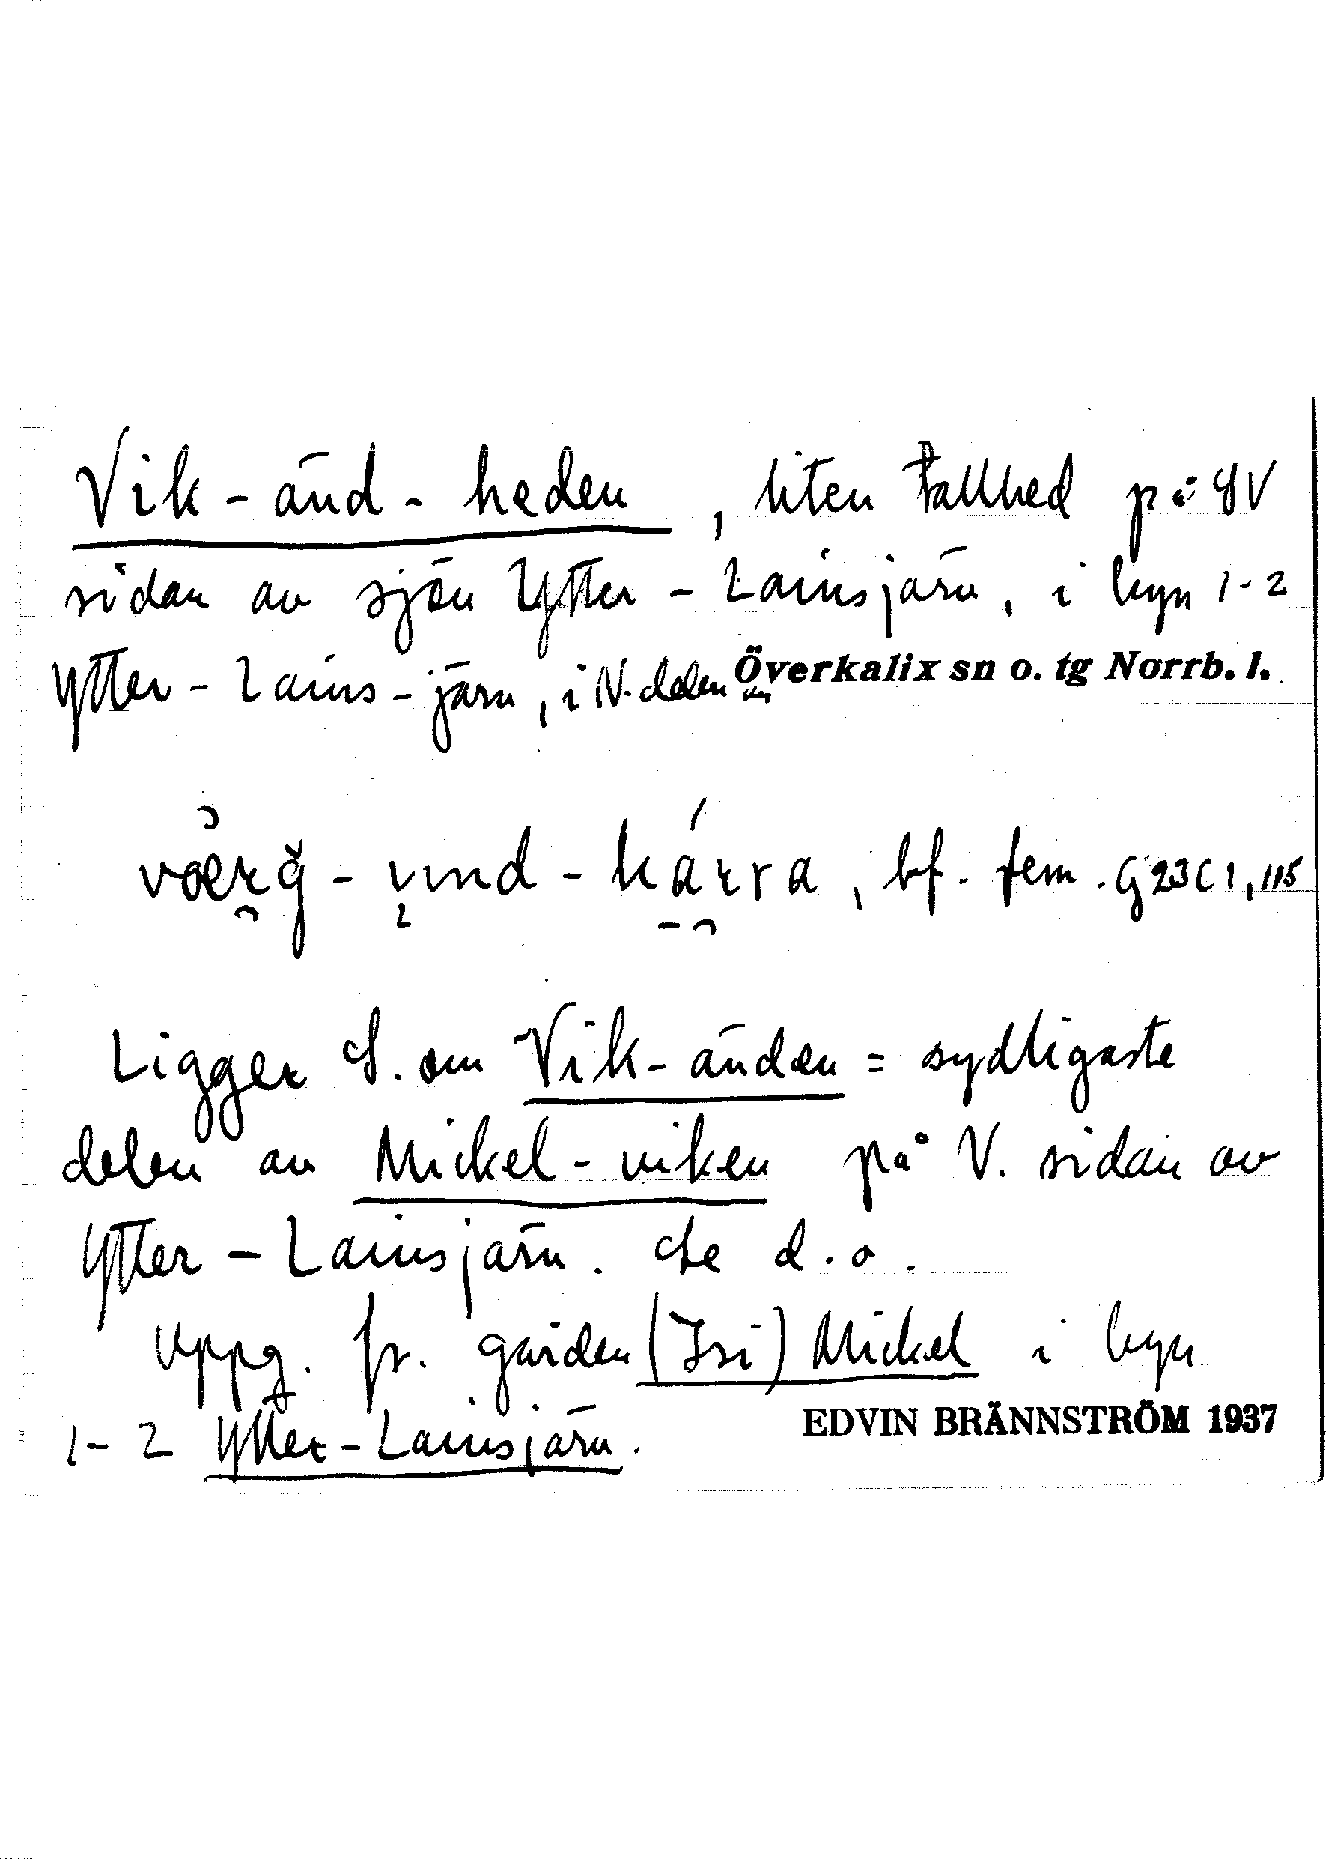 Vik-änd-heden, liten tallhed på SV
sidan av sjön Ytter-Lainsjärv, i byn 1-2
Ytter-Lains-järv, i N. delen av Överkalix sn o. tg Norrb. l.
hárra, bf. fem. G23C1,115
Ligger S. om Vik-änden = sydligaste
delen av Mickel-viken på V. sidan av
Ytter-Lainsjärv. Se d. o.
Uppg. fr. gården (Isi) Mickel i byn
1-2 Ytter-Lainsjärv.
EDVIN BRÄNNSTRÖM 1937